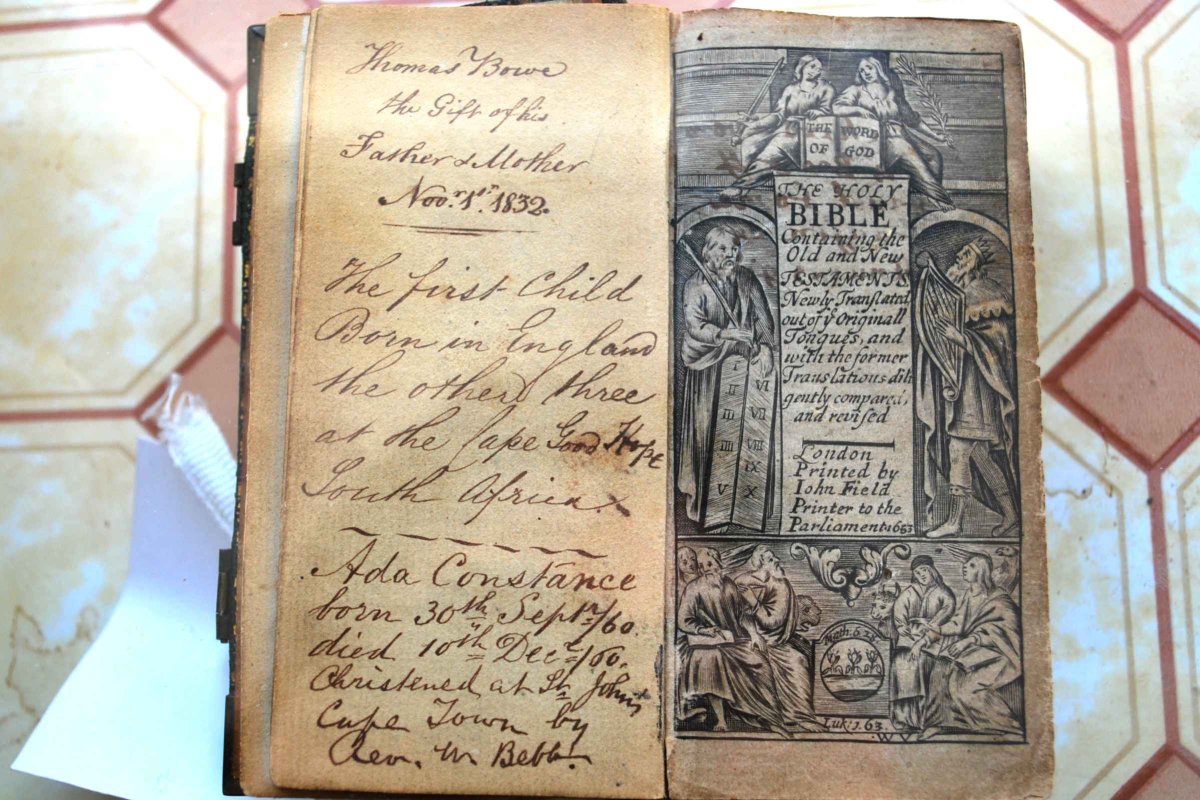 Thomas Bowe
the Gift of his
Father & Mother
Nov.r 1st. 1832.
The first Child
Born in England
the other three
at the Cape Good Hope
South Africa
Ada Constance
born 30th Septr/60.
died 10th Decr/60.
Christened at St Johns
Cape Town by
Rev. Mr Bebb.
THE WORD
OF GOD
THE HOLY
BIBLE
Containing the
Old and New
TESTAMENTS
Newly Translated
out of ye Originall
Tongues, and
with the former
Translations dili
gently compared,
and revised
London
Printed by
Iohn Field
Printer to the
Parliament 1653
I VI
II VII
III VIII
IIII IX
V X
Math: 6. 28
Luk: 1.63.